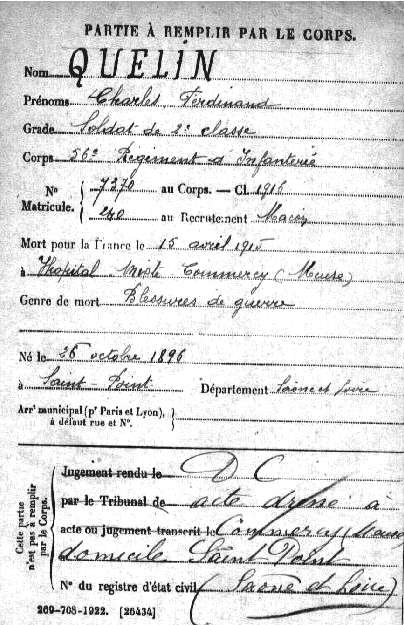 PARTIE À REMPLIR PAR LE CORPS.
Nom QUELIN
Prénoms Charles Ferdinand
Grade Soldat de 2e classe
Corps 56e Régiment d'Infanterie
No Matricule. { 7270 au Corps. — Cl. 1916
240 au Recrutement Macon
Mort pour la France le 15 avril 1915
à Hopital Mixte Commercy (Meuse)
Genre de mort Blessures de guerre
Né le 26 octobre 1896
à Saint-Point Département Saône et Loire
Arrt municipal (pr Paris et Lyon), à défaut rue et No. }
Cette partie n'est pas à remplir par le Corps.
Jugement rendu le D C
par le Tribunal de acte dressé à
acte ou jugement transcrit le Commercy (Meuse)
domicile Saint Point
No du registre d'état civil (Saône et Loire)
269-708-1922. [26434]